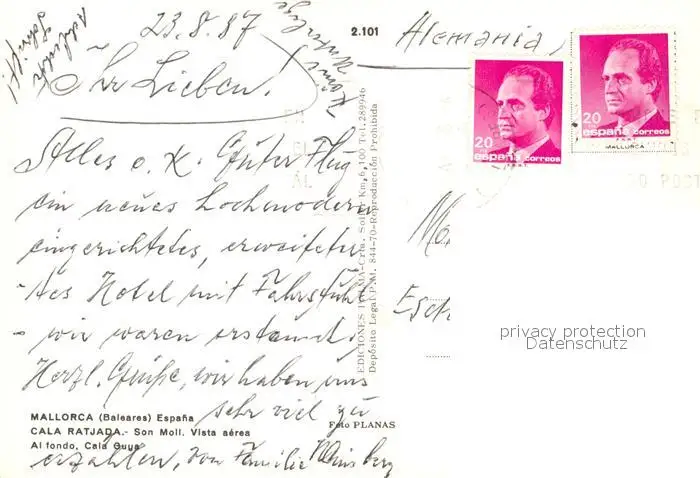 23.8.87
Ihr Lieben!
Alles o.K. Guter Flug
ein neues hochmodern
eingerichtetes, erweiter-
tes Hotel mit Fahrstuhl
- wir waren erstaunt.
Herzl. Grüße, wir haben uns
sehr viel zu
erzählen, von Familie
MALLORCA (Baleares) España
CALA RATJADA.- Son Moll. Vista aérea
Al fondo, Cala Guya
Foto PLANAS
2.101
EDICIONES PALMA-Crta. Soller Km,6,100 Tel.289946
Depósito Legal P.M. 844-70-Reproducción Prohibida
Alemania
20
españa correos
20
españa correos
MALLORCA
privacy protection
Datenschutz